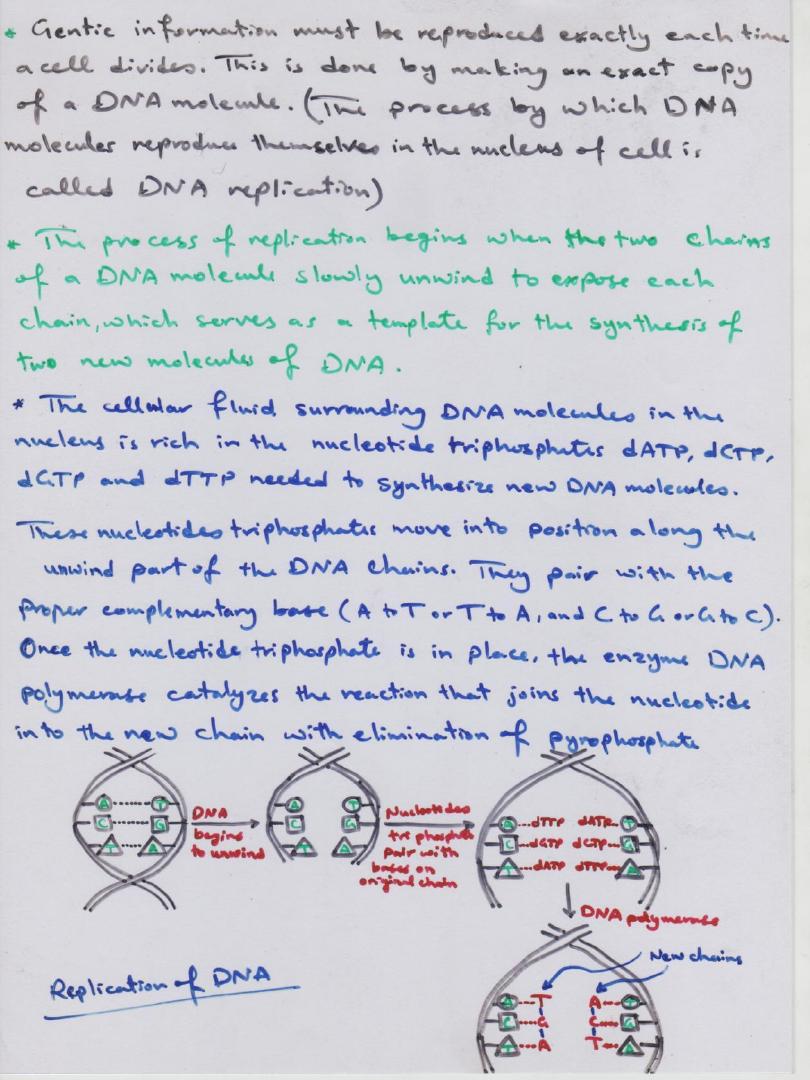 * Gentic information must be reproduced exactly each time
a cell divides. This is done by making an exact copy
of a DNA molecule. (The process by which DNA
molecules reproduce themselves in the nucleus of cell is
called DNA replication)
* The process of replication begins when the two chains
of a DNA molecule slowly unwind to expose each
chain, which serves as a template for the synthesis of
two new molecules of DNA.
* The cellular fluid surrounding DNA molecules in the
nucleus is rich in the nucleotide triphosphates dATP, dCTP,
dGTP and dTTP needed to synthesize new DNA molecules.
These nucleotides triphosphates move into position along the
unwind part of the DNA chains. They pair with the
proper complementary base (A to T or T to A, and C to G or G to C).
Once the nucleotide triphosphate is in place, the enzyme DNA
polymerase catalyzes the reaction that joins the nucleotide
into the new chain with elimination of pyrophosphate
A T
C G
T A
DNA
begins
to unwind
A T
C G
T A
Nucleotides
tri phosphate
pair with
bases on
original chain
A dTTP dATP T
C dGTP dCTP G
T dATP dTTP A
DNA polymerase
New chains
A T A T
C G C G
T A T A
Replication of DNA